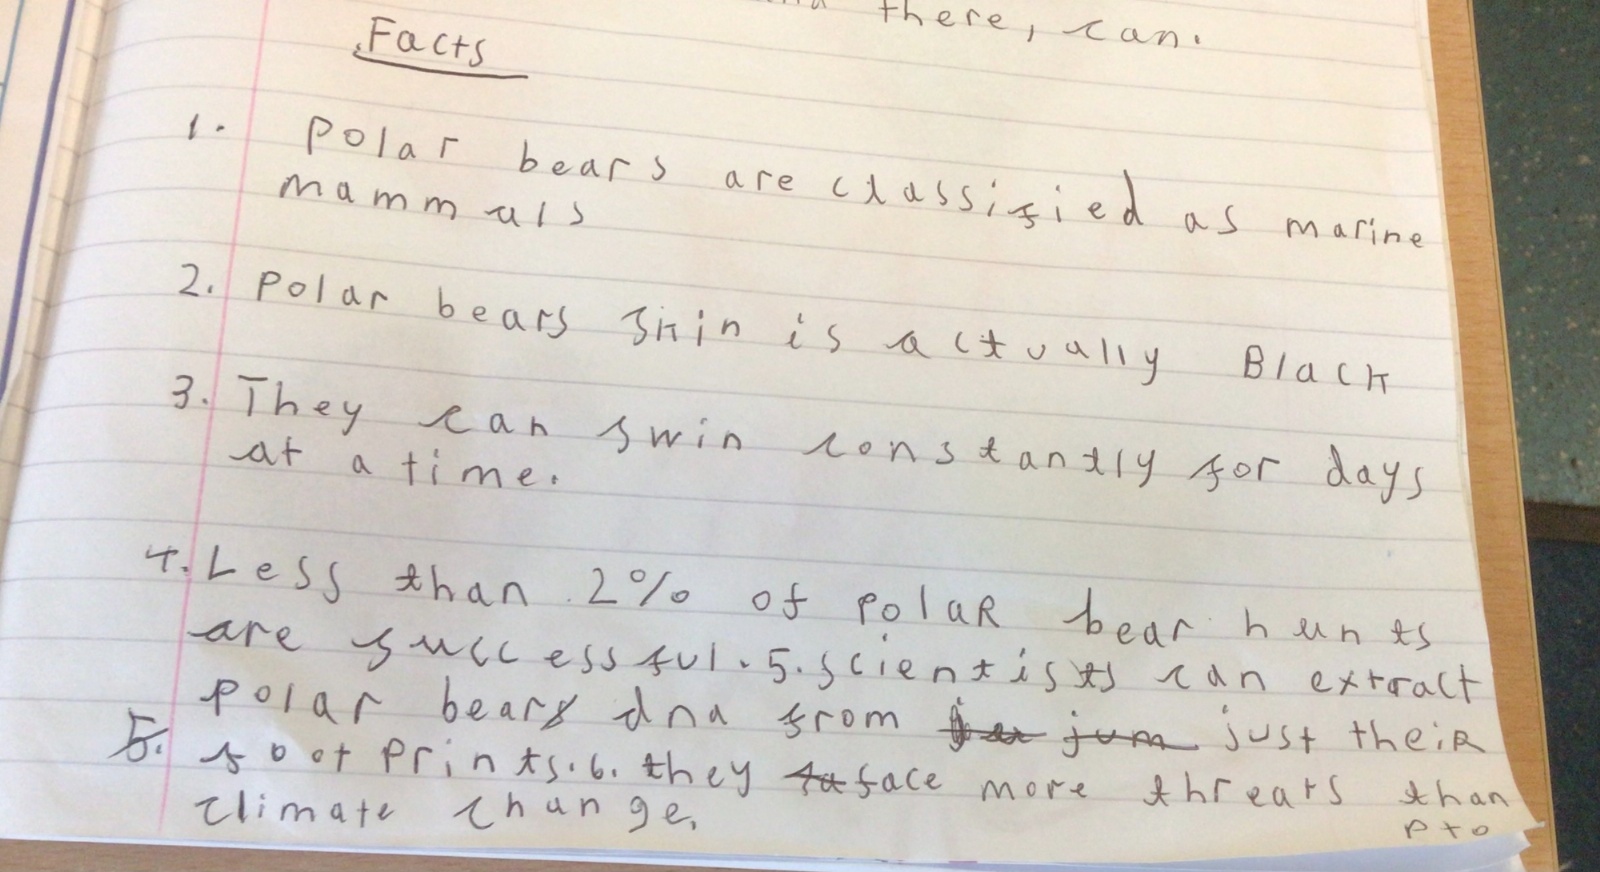 there, can.
Facts
1. Polar bears are classified as marine
mammals
2. Polar bears skin is actually Black
3. They can swin constantly for days
at a time.
4. Less than 2% of polaR bear hunts
are successful. 5. scientists can extract
polar bears dna from just theiR
5. footprints. 6. they face more threats than
climate change.
pto